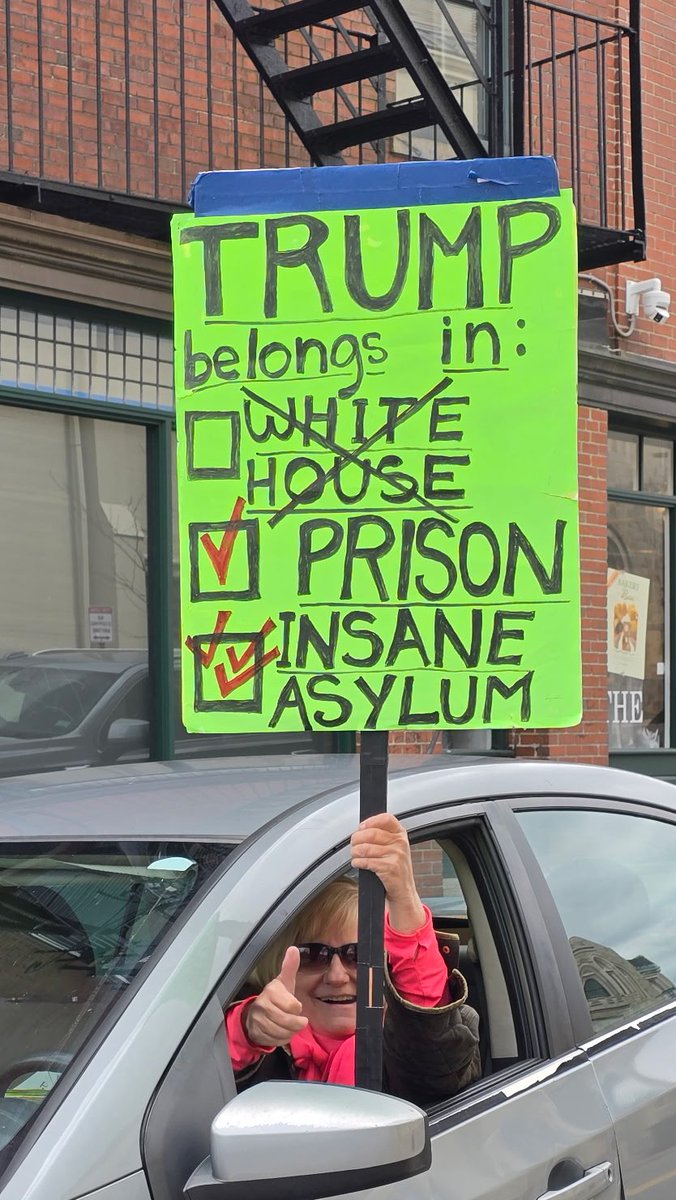 TRUMP
belongs in:
WHITE
HOUSE
PRISON
INSANE
ASYLUM
THE